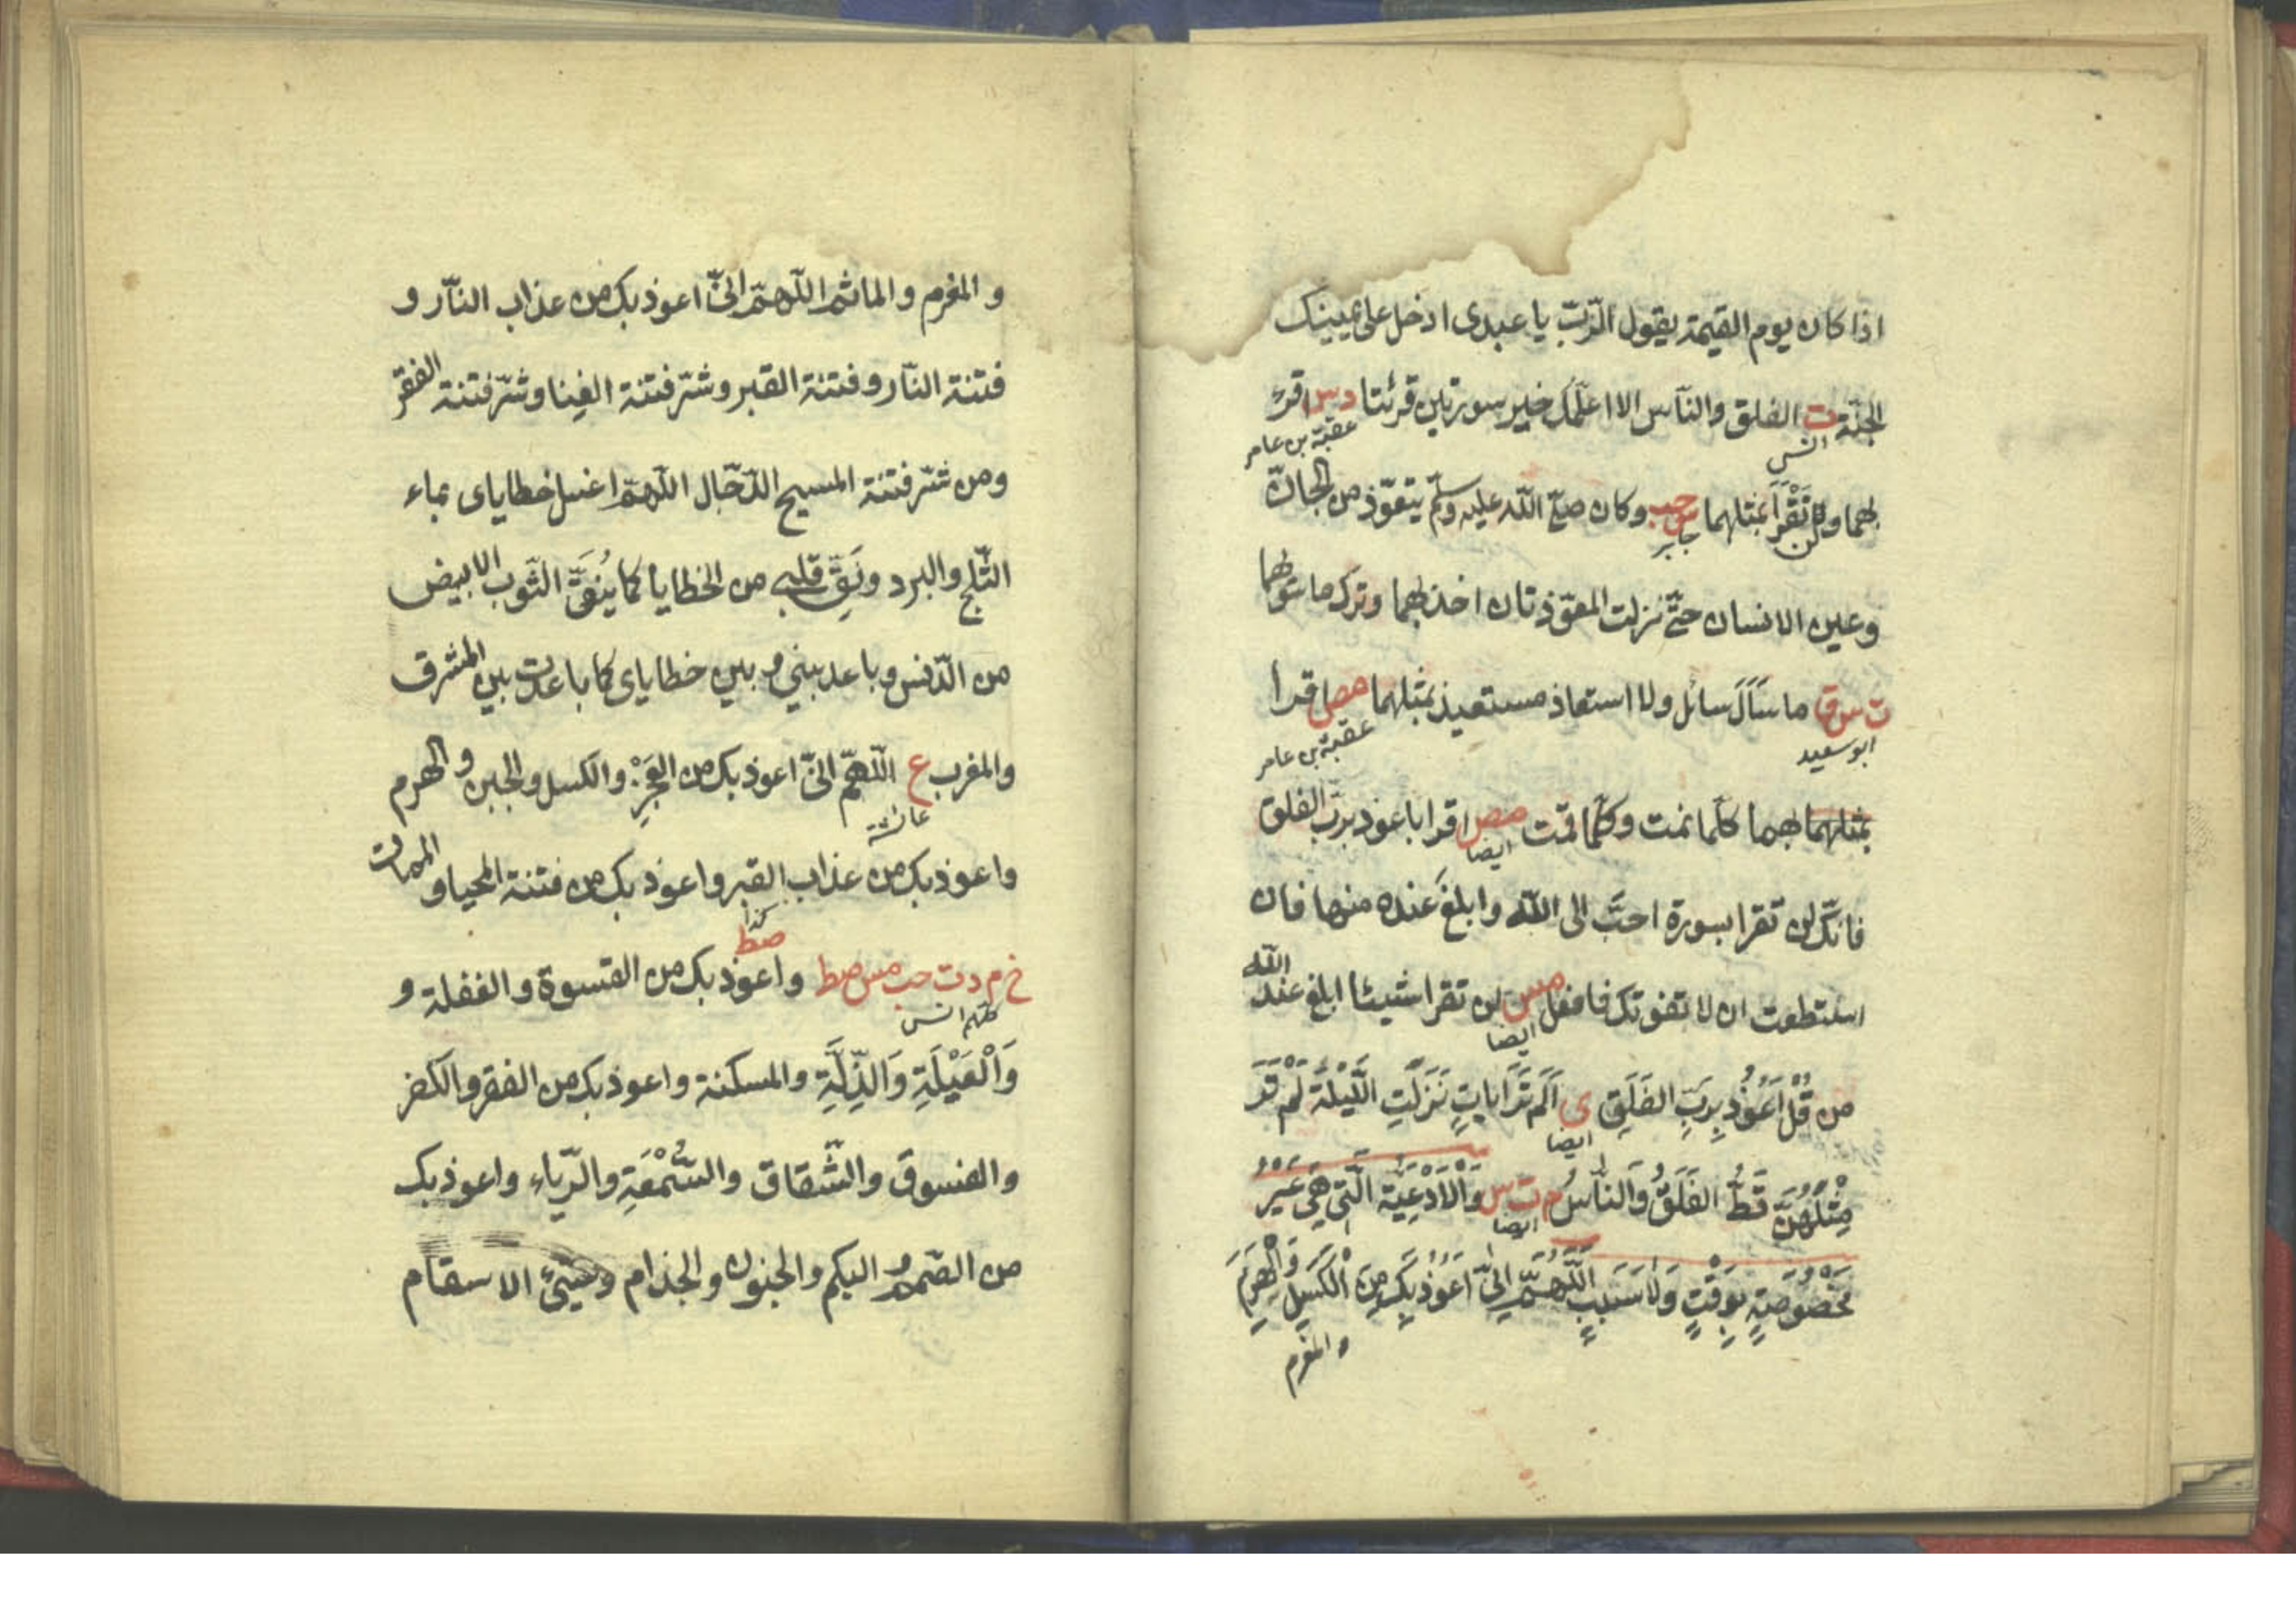 اذا كان يوم القيمة يقول الرّبّ يا عبدى ادخل على يمينك
الجنّة ت الفلق والنّاس الا اعلّمك خير سورتين قرئتا د س اقرء
انس
عقبة بن عامر
بهما ولن تَقْرَأَ بمثلهما س حب وكان صلّى اللّه عليه وسلّم يتعوّذ من الجانّ
جابر
وعين الانسان حتّى نزلت المعوّذتان اخذ بهما وترك ما سواهما
ت س ق ما سَأَلَ سائل ولا استعاذ مستعيذ بمثلهما مص اقرأ
ابو سعيد
عقبة بن عامر
بمثلهما بهما كلّما نمت وكلّما قمت مص اقرا باعوذ بربّ الفلق
ايضا
فانّك لن تقرا بسورة احبّ الى اللّه وابلغَ عنده منها فان
استطعت ان لا تفوتك فافعل مس لن تقرا شيئا ابلغ عند اللّه
ايضا
من قُلْ اَعُوْذُ بِرَبِّ الفَلَقِ ى اَلَمْ تَرَ اٰيَاتٍ نَزَلَتِ اللَّيْلَةَ لَمْ تَرَ
ايضا
مِثْلَهُنَّ قَطُّ الفَلَقُ وَالنَّاسُ م ت س وَالْاَدْعِيَةُ الَّتِي هِيَ غَيْرُ
ايضا
مَخْصُوْصَةٍ بِوَقْتٍ وَلَا سَبَبٍ اَللّٰهُمَّ اِنِّيْ اَعُوْذُ بِكَ مِنَ الْكَسَلِ وَالْهَرَمِ
والمغرم
و المغرم والماثم اللّهمّ انّى اعوذ بك من عذاب النّار و
فتنة النّار وفتنة القبر وشرّ فتنة الغِنا وشرّ فتنة الفقر
ومن شرّ فتنة المسيح الدّجّال اللّهمّ اغسل خطاياى بماء
الثّلج والبرد ونَقِّ قلبى من الخطايا كما يُنَقَّى الثّوب الابيض
من الدّنس وباعد بينى وبين خطاياى كما باعدت بين المشرق
والمغرب ع اللّهمّ انّى اعوذ بك من العَجْزِ والكسل والجبن والهرم
عائشة
واعوذ بك من عذاب القبر واعوذ بك من فتنة المحيا والممات
كذا
صط
خ م د ت حب مس صط واعوذ بك من القسوة والغفلة و
كلهم انس
وَالْعَيْلَةِ وَالذِّلَّةِ والمسكنة واعوذ بك من الفقر والكفر
والفسوق والشّقاق والسُّمْعَةِ والرّياء واعوذ بك
من الصّمم والبكم والجنون والجذام وسَيّئ الاسقام